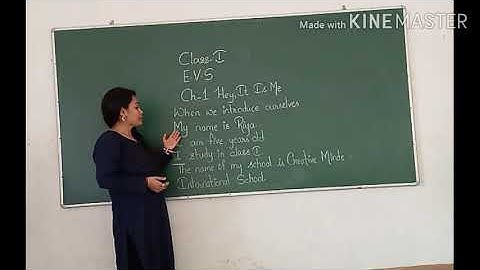 Made with KINEMASTER
Class-I
E.V.S
Ch-1 Hey, It Is Me
When we introduce ourselves
My name is Riya.
I am five years old
I study in class I
The name of my school is Creative Minds
International School